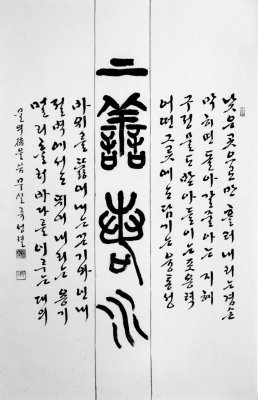 낮은 곳으로만 흘러 내리는 겸손
막히면 돌아갈 줄 아는 지혜
구정물도 받아들이는 포용력
어떤 그릇에도 담기는 융통성
上善若水
바위를 뚫어내는 끈기와 인내
절벽에서는 뛰어 내리는 용기
멀리 흘러 바다를 이루는 대의
물의 德을